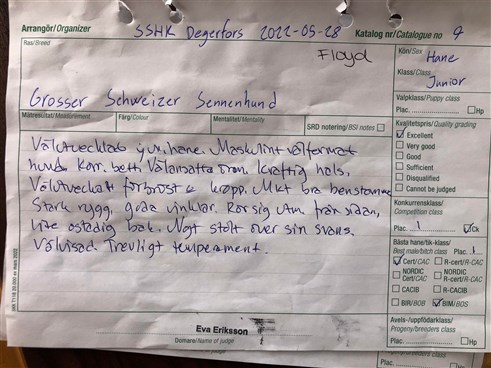 Arrangör/Organizer SSHK Degerfors 2022-05-28 Katalog nr/Catalogue no 9
Ras/Breed
Floyd
Grosser Schweizer Sennenhund
Kön/Sex Hane
Klass/Class Junior
Valpklass/Puppy class
Plac. Hp
Mätresultat/Measurement Färg/Colour Mentalitet/Mentality SRD notering/BSI notes
Kvalitetspris/Quality grading
Excellent
Very good
Good
Sufficient
Disqualified
Cannot be judged
Välutvecklad jun.hane. Maskulint välformat
huvud. Korr. bett. Välansatta öron. Kraftig hals.
Välutveckat förbröst & kropp. Mkt bra benstamme
Stark rygg, goda vinklar. Rör sig utm. från sidan,
lite ostadig bak. Ngt stolt över sin svans.
Välvisad. Trevligt temperament.
Konkurrensklass/
Competition class
Plac. 1 Ck
Bästa hane/tik-klass/
Best male/bitch class Plac. 1
Cert/CAC R-cert/R-CAC
NORDIC Cert/CAC NORDIC R-cert/R-CAC
CACIB R-CACIB
BIR/BOB BIM/BOS
Avels-/uppfödarklass/
Progeny/breeders class
Plac. Hp
Eva Eriksson
Domare/Name of judge
Progeny/breeders class
Plac. Hp